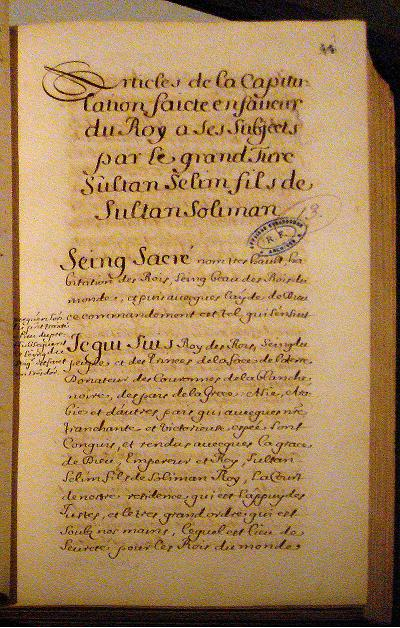 44
Articles de la Capitu
lation faicte en faueur
du Roy a ses Subjects
par le grand Turc
Sultan Selim fils de
Sultan Soliman
13.
R F
Seing Sacré nom tres hault ha
bitation des Rois, Seing beau des Rois du
monde, et puis auecques l'ayde de Dieu
ce commandement est tel, qui s'ensuit
Je qui suis Roy des Rois, Seing du
peuple, et des Princes de la face de la terre
Donateur des Couronnes de la blanche
noire, des pais de la Grece, Asie, Ara
bie et d'autres pais qui auecques nre
tranchante et victorieuse espée sont
Conquis, et rendus auecques la grace
de Dieu, Empereur et Roy, Sultan
Selim fils de Soliman Roy, La Court
de nostre residence qui est l'appuy des
Justes, et le tres grand ordre qui est
soubz nos mains, lequel est lieu de
seureté pour les Rois du monde